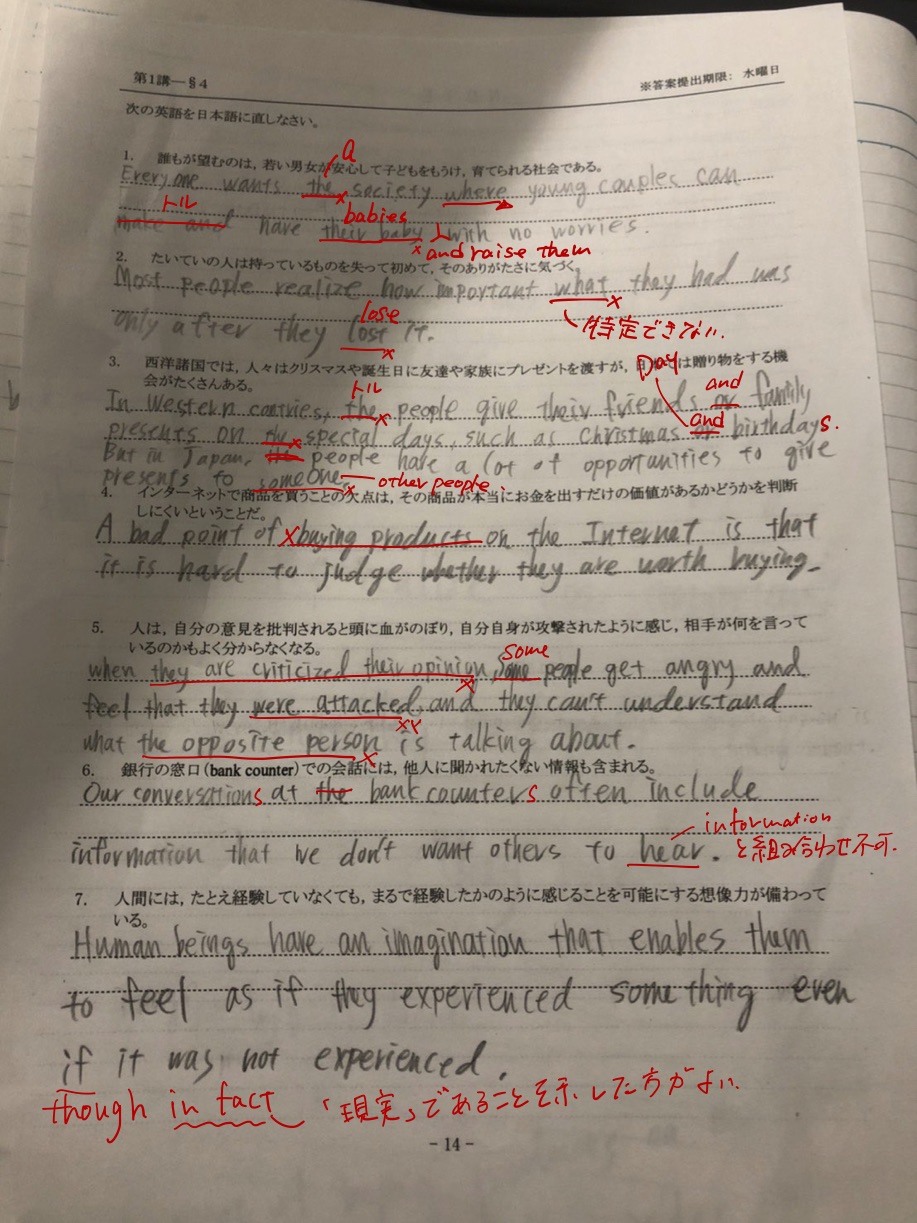 第1講—§4
※答案提出期限: 水曜日
次の英語を日本語に直しなさい。
1. 誰もが望むのは，若い男女が安心して子どもをもうけ，育てられる社会である。
a
Everyone wants the society where young couples can
トル
babies
make and have their baby with no worries.
and raise them
2. たいていの人は持っているものを失って初めて，そのありがたさに気づく。
Most people realize how important what they had was
lose
only after they lost it.
特定できない.
3. 西洋諸国では，人々はクリスマスや誕生日に友達や家族にプレゼントを渡すが，日本では贈り物をする機
会がたくさんある。
Day
トル
and
In Western contries, the people give their friends or family
and
presents on the special days, such as Christmas or birthdays.
But in Japan, the people have a lot of opportunities to give
presents to someone.
other people.
4. インターネットで商品を買うことの欠点は，その商品が本当にお金を出すだけの価値があるかどうかを判断
しにくいということだ。
A bad point of buying products on the Internet is that
it is hard to judge whether they are worth buying.
5. 人は，自分の意見を批判されると頭に血がのぼり，自分自身が攻撃されたように感じ，相手が何を言って
いるのかもよく分からなくなる。
some
when they are criticized their opinion, some people get angry and
feel that they were attacked, and they can't understand
what the opposite person is talking about.
6. 銀行の窓口 (bank counter) での会話には，他人に聞かれたくない情報も含まれる。
Our conversations at the bank counters often include
information
information that we don't want others to hear.
と組み合わせ不可.
7. 人間には，たとえ経験していなくても，まるで経験したかのように感じることを可能にする想像力が備わって
いる。
Human beings have an imagination that enables them
to feel as if they experienced something even
if it was not experienced.
though in fact 「現実」であることを示した方がよい.
- 14 -